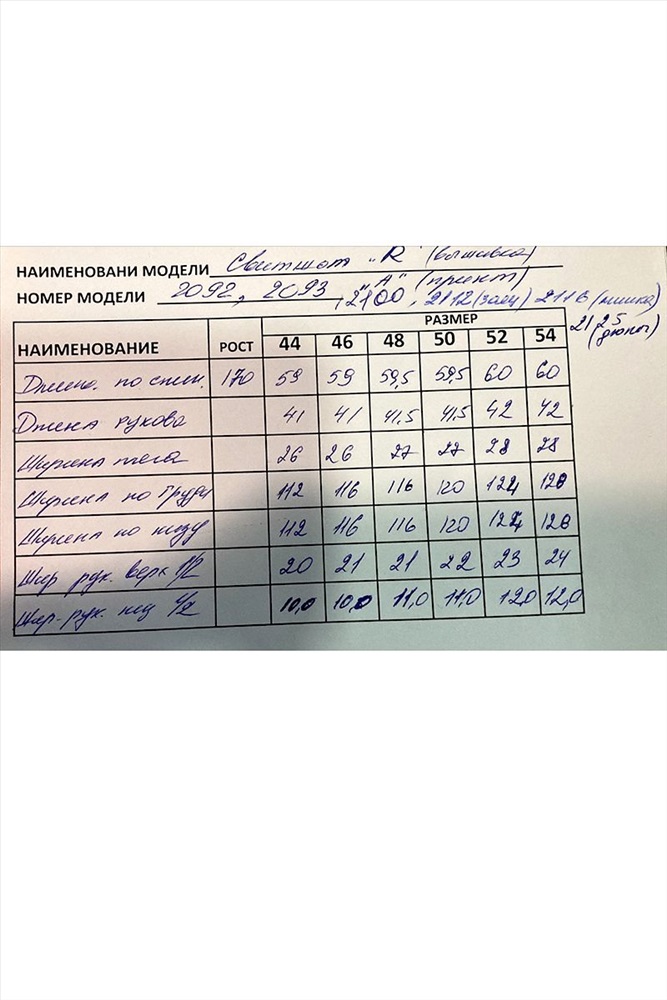 НАИМЕНОВАНИ МОДЕЛИ Свитшот "R" (вышивка)
"А" (принт)
НОМЕР МОДЕЛИ 2092, 2093, 2100, 2112 (заяц) 2116 (мишка)
2125
НАИМЕНОВАНИЕ РОСТ РАЗМЕР
44 46 48 50 52 54
Длина по спин. 170 59 59 59,5 59,5 60 60
Длина рукова 41 41 41,5 41,5 42 42
Ширина плеча 26 26 27 27 28 28
Ширина по груди 112 116 116 120 124 128
Ширина по низу 112 116 116 120 124 128
Шир рук. верх 1/2 20 21 21 22 23 24
Шир. рук. низ 1/2 10,0 10,0 11,0 11,0 12,0 12,0